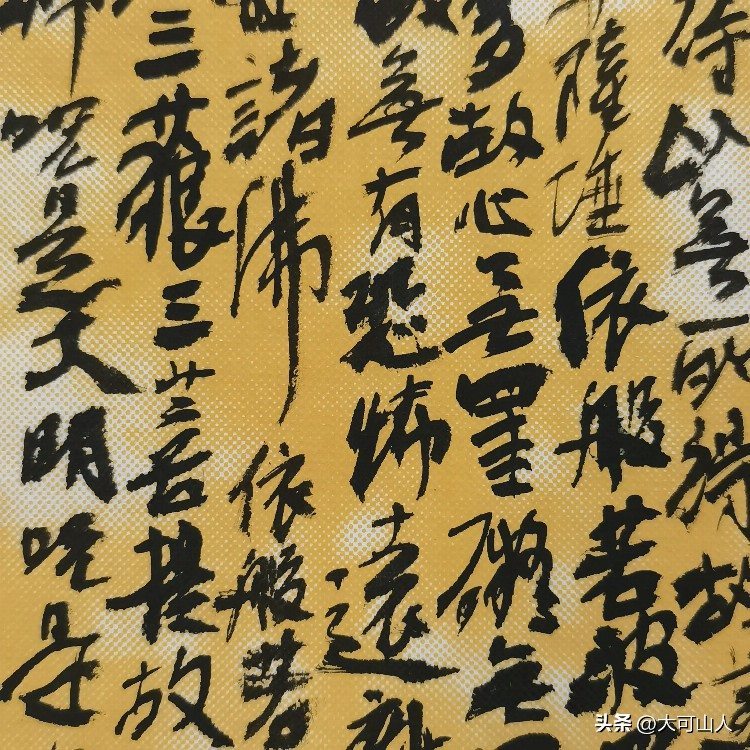 得以無所得故
薩埵依般若波
多故心無罣礙無
故無有恐怖遠離
諸佛依般若
三藐三菩提故
神咒是大明咒是
头条 @大可山人